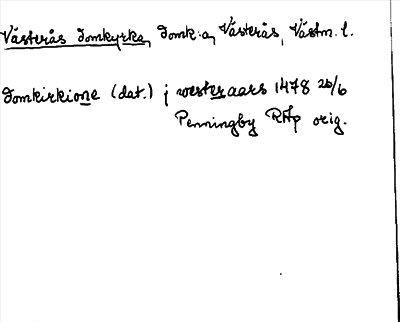 Västerås domkyrka, Domk:a, Västerås, Västm. l.
Domkirkione (dat.) j westeraars 1478 26/6
Penningby RAp orig.